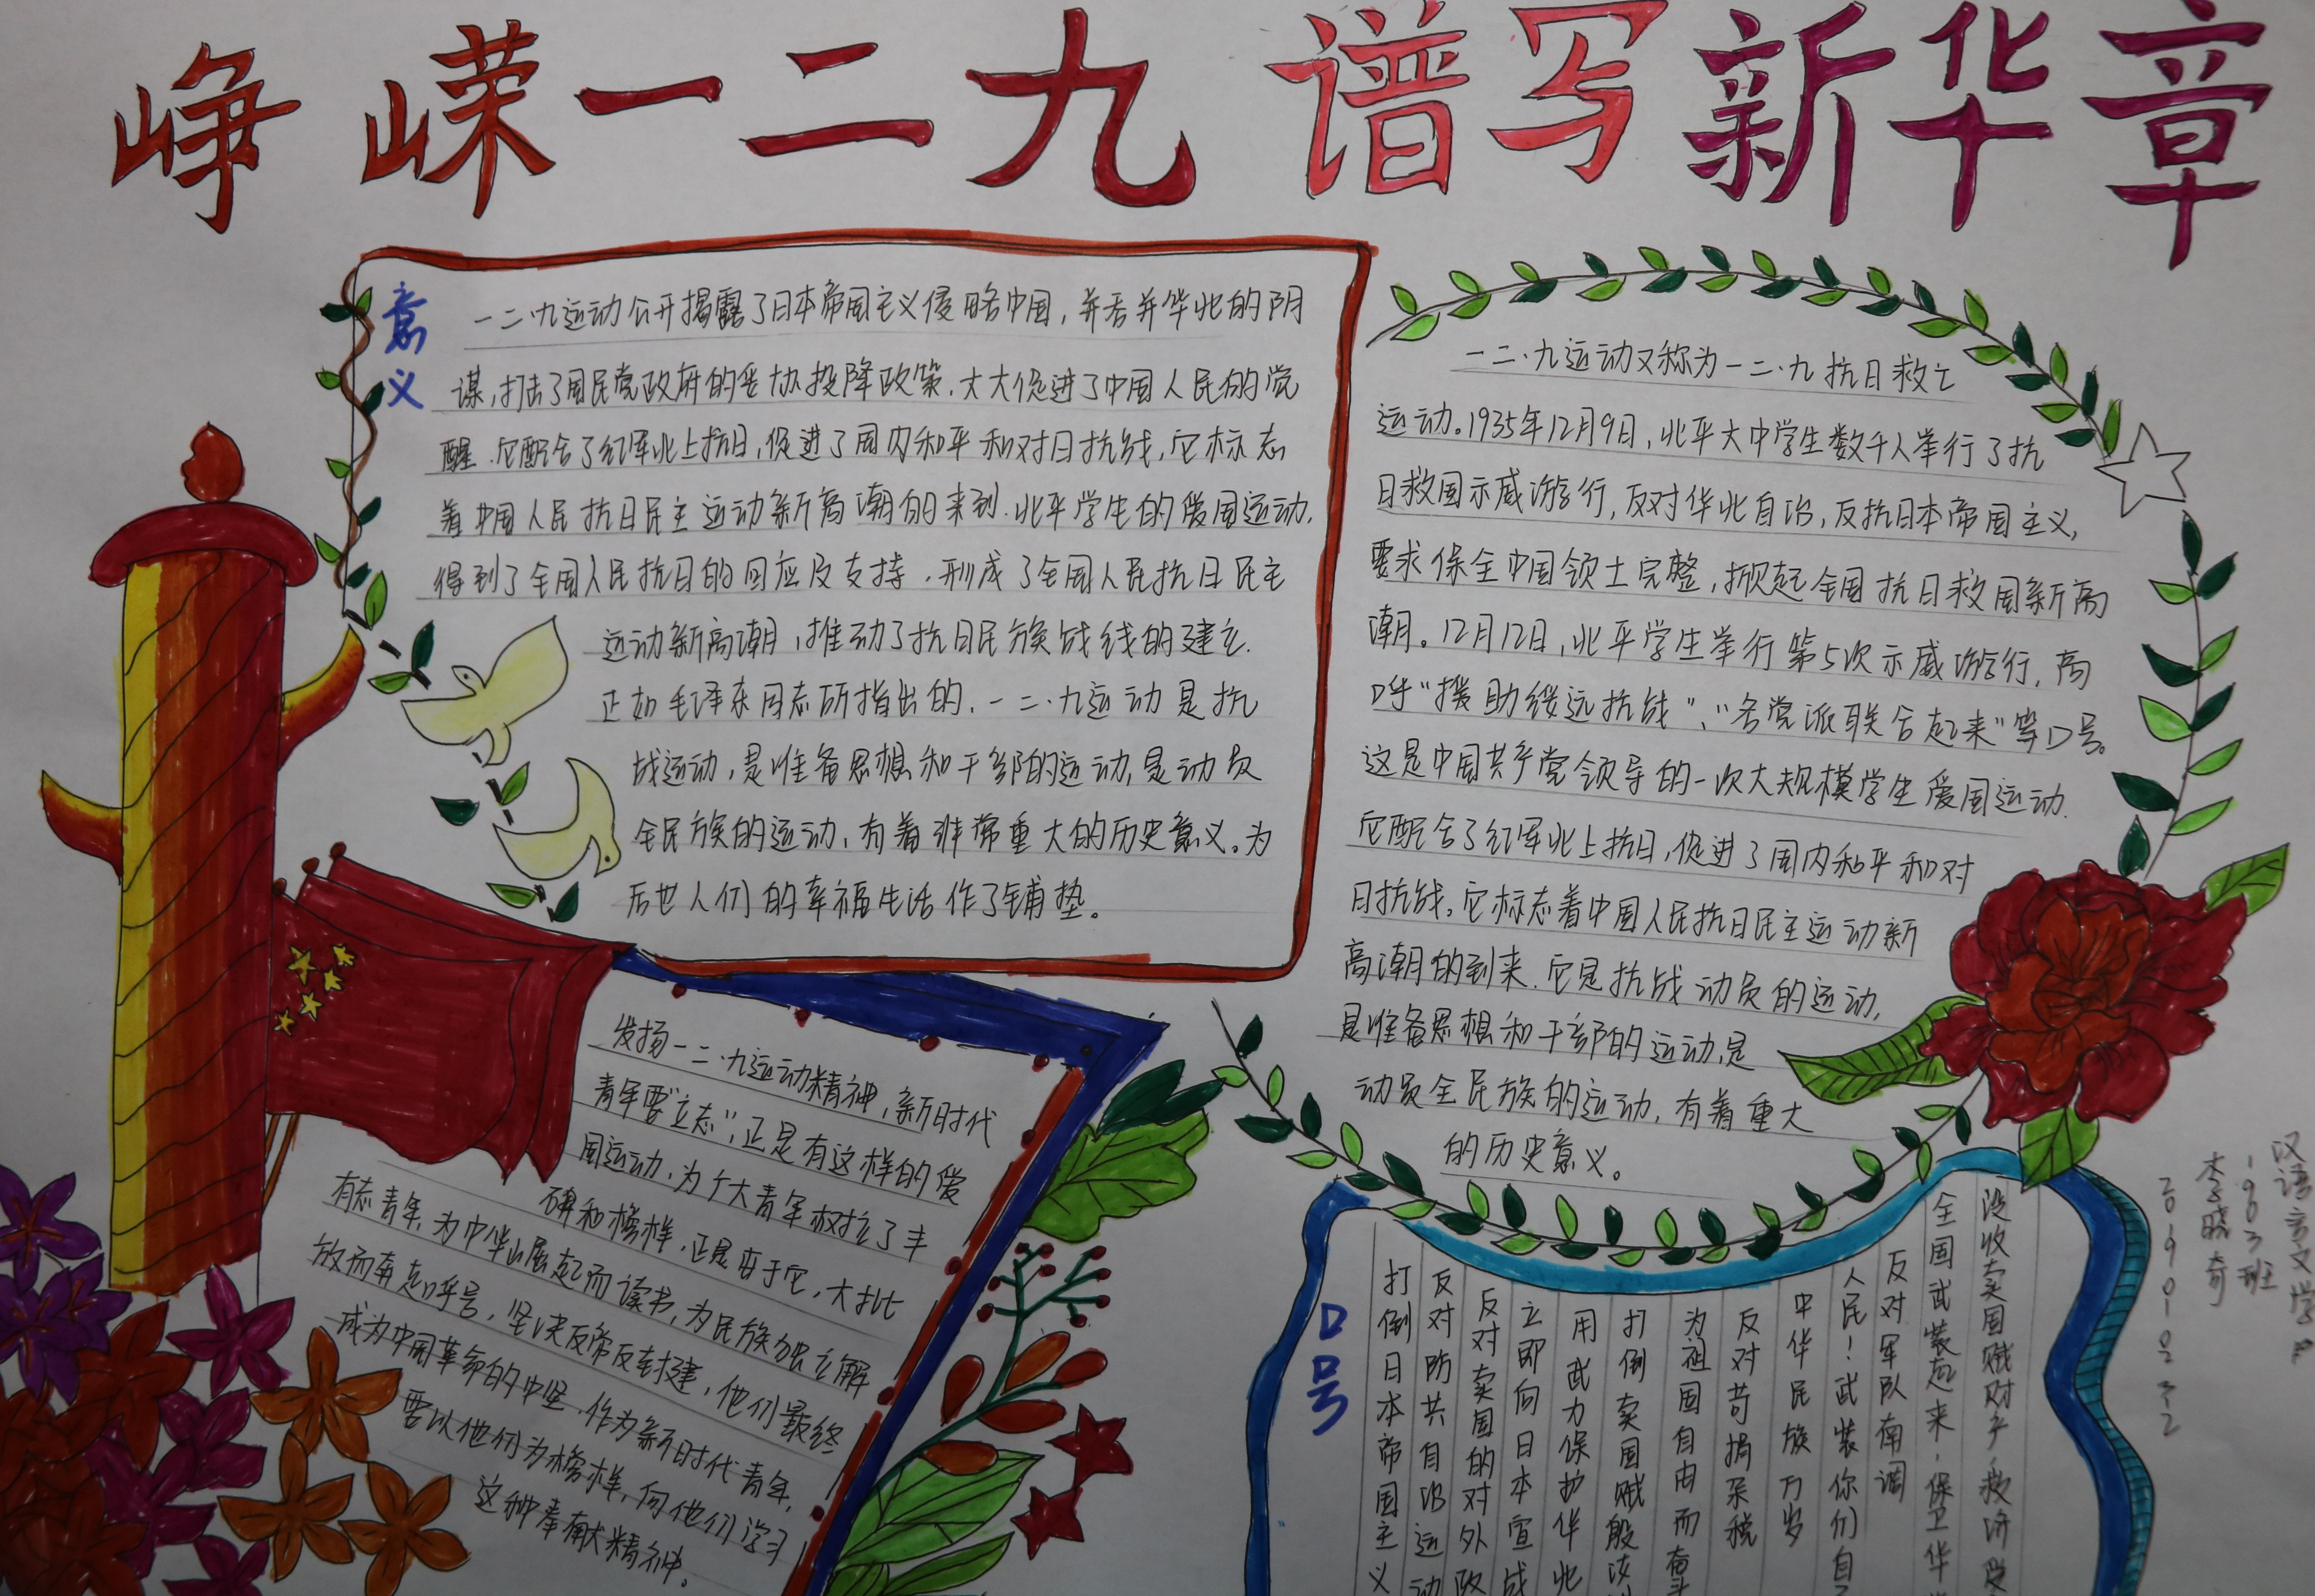 峥嵘一二九 谱写新华章
意义
一二·九运动公开揭露了日本帝国主义侵略中国，并吞并华北的阴
谋，打击了国民党政府的妥协投降政策，大大促进了中国人民的觉
醒．它配合了红军北上抗日，促进了国内和平和对日抗战，它标志
着中国人民抗日民主运动新高潮的来到．北平学生的爱国运动，
得到了全国人民抗日的回应及支持．形成了全国人民抗日民主
运动新高潮，推动了抗日民族战线的建立．
正如毛泽东同志所指出的，一二·九运动是抗
战运动，是准备思想和干部的运动，是动员
全民族的运动，有着非常重大的历史意义。为
后世人们的幸福生活作了铺垫。
一二·九运动又称为一二·九抗日救亡
运动。1935年12月9日，北平大中学生数千人举行了抗
日救国示威游行，反对华北自治，反抗日本帝国主义，
要求保全中国领土完整，掀起全国抗日救国新高
潮。12月12日，北平学生举行第5次示威游行，高
呼“援助绥远抗战”、“各党派联合起来”等口号。
这是中国共产党领导的一次大规模学生爱国运动．
它配合了红军北上抗日，促进了国内和平和对
日抗战。它标志着中国人民抗日民主运动新
高潮的到来．它是抗战动员的运动，
是准备思想和干部的运动，是
动员全民族的运动，有着重大
的历史意义。
发扬一二·九运动精神，新时代
青年要“立志”，正是有这样的爱
国运动，为广大青年树立了丰
碑和榜样，正是由于它，大批
有志青年，为中华崛起而读书，为民族独立解
放而奔走呼号，坚决反帝反封建，他们最终
成为中国革命的中坚．作为新时代青年，
要以他们为榜样，向他们学习
这种奉献精神。
口号
打倒日本帝国主义
反对防共自治运动
反对卖国的对外政
立即向日本宣战
用武力保护华北
打倒卖国贼殷汝
为祖国自由而奋
反对苛捐杂税
中华民族万岁
人民！武装你们自
反对军队南调
全国武装起来，保卫华
没收卖国贼财产，救济
汉语言文学
1903班
李晓奇